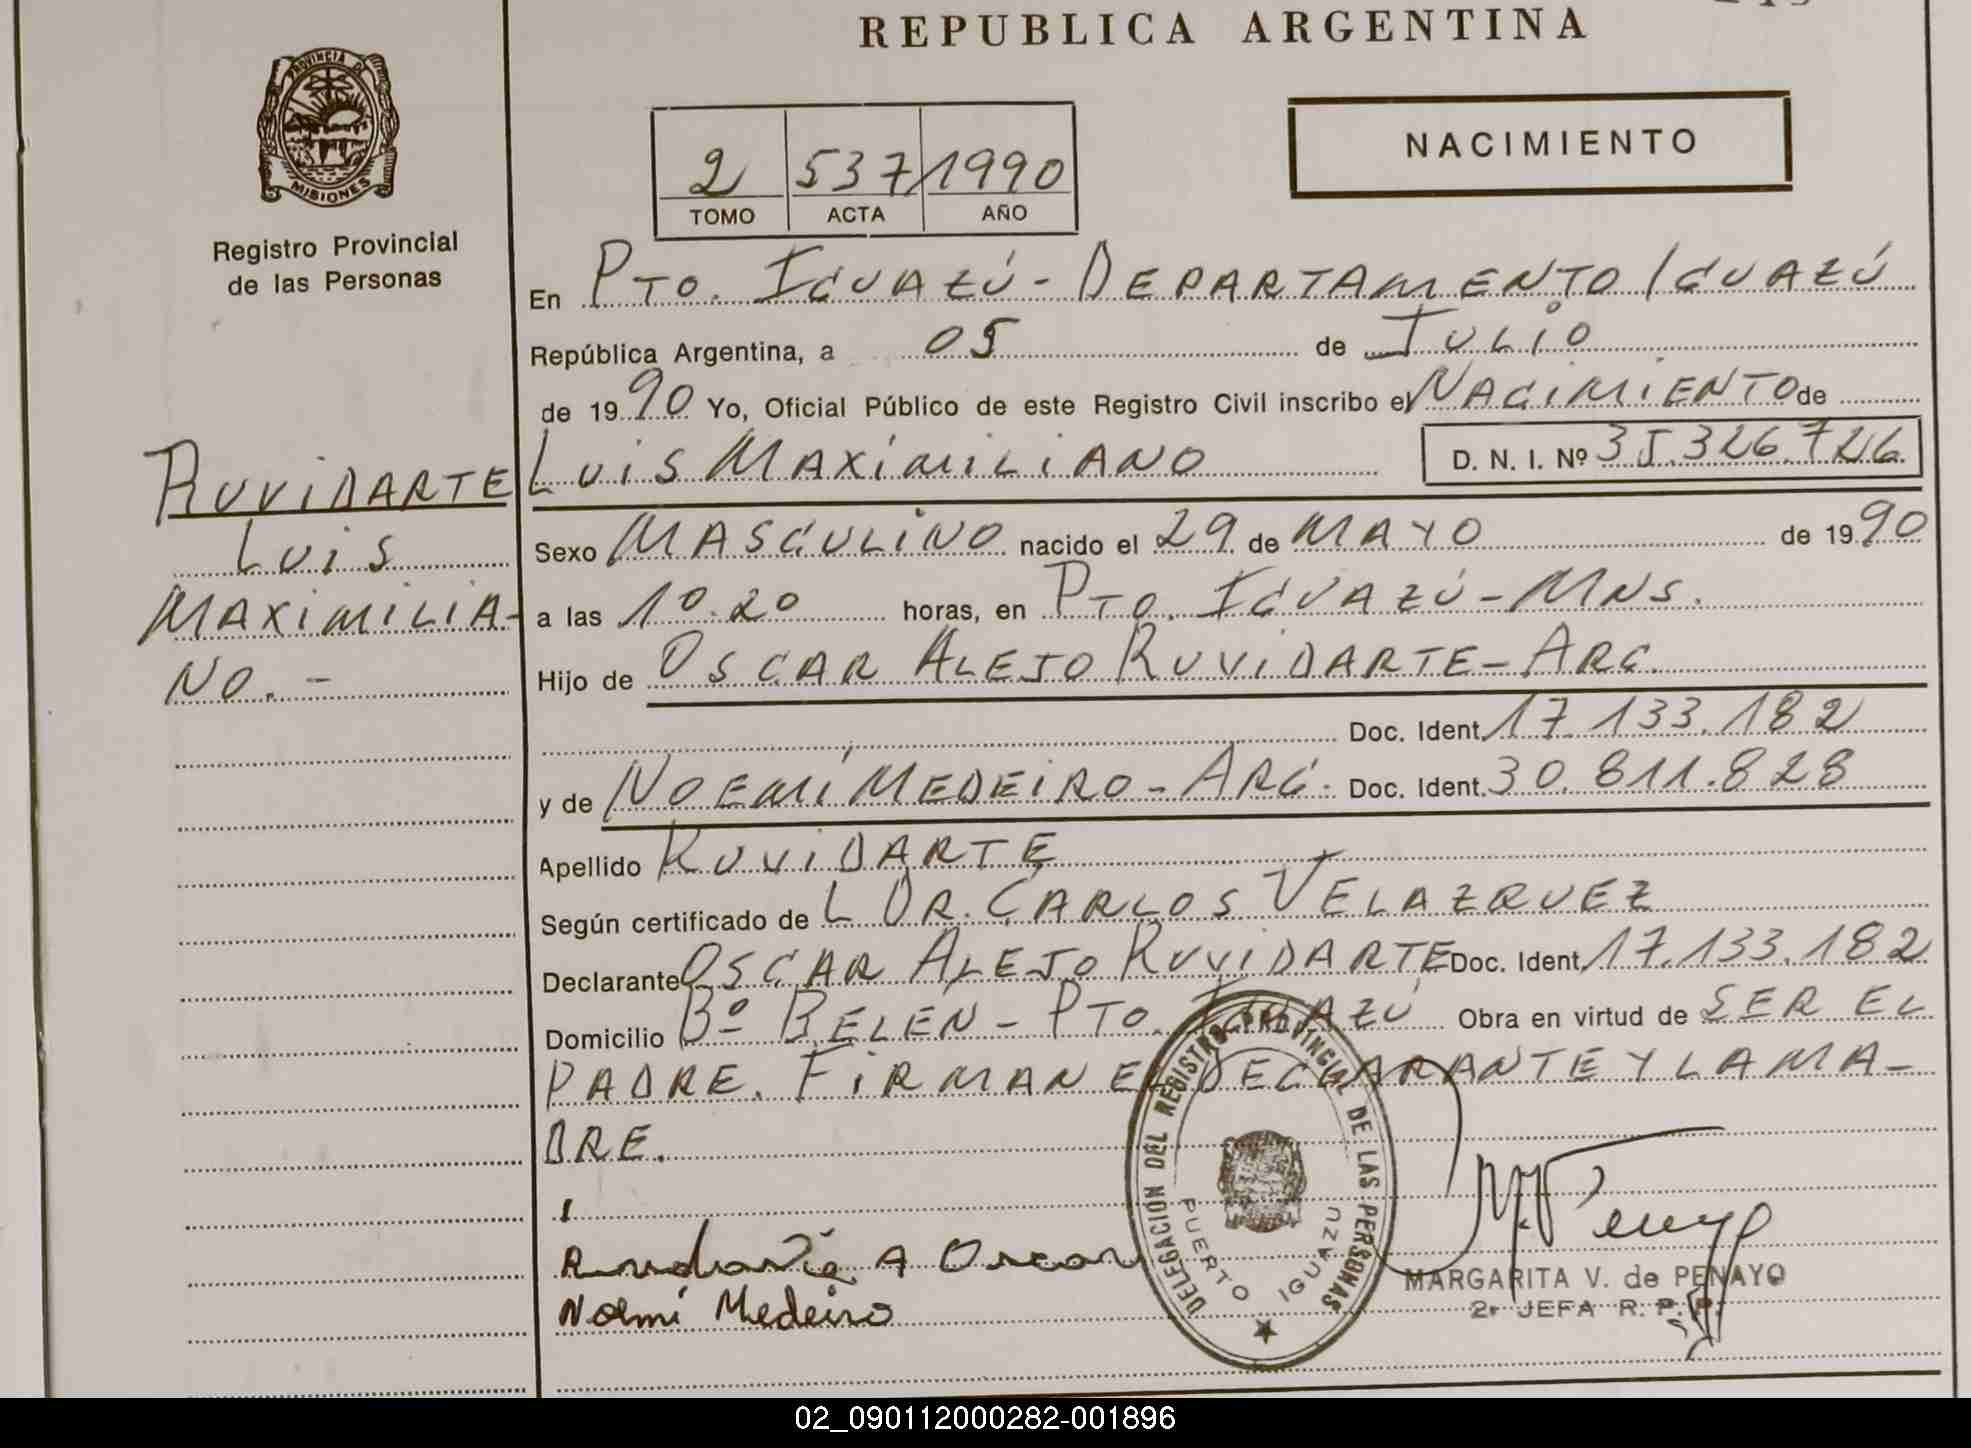 REPUBLICA ARGENTINA
PROVINCIA DE
MISIONES
Registro Provincial
de las Personas
2 537 1990
TOMO ACTA AÑO
NACIMIENTO
En PTO. IGUAZÚ - DEPARTAMENTO IGUAZÚ
República Argentina, a 05 de JULIO
de 1990 Yo, Oficial Público de este Registro Civil inscribo el NACIMIENTO de
LUIS MAXIMILIANO D. N. I. Nº 35.326.726
RUVIDARTE
LUIS
MAXIMILIA-
NO.-
Sexo MASCULINO nacido el 29 de MAYO de 1990
a las 10.20 horas, en PTO. IGUAZÚ - MNS.
Hijo de OSCAR ALEJO RUVIDARTE - ARG.
Doc. Ident. 17.133.182
y de NOEMÍ MEDEIRO - ARG. Doc. Ident. 30.811.828
Apellido RUVIDARTE
Según certificado de L DR. CARLOS VELAZQUEZ
Declarante OSCAR ALEJO RUVIDARTE Doc. Ident. 17.133.182
Domicilio Bº BELEN - PTO. IGUAZÚ Obra en virtud de SER EL
PADRE. FIRMAN EL DECLARANTE Y LA MA-
DRE.
DELEGACIÓN DEL REGISTRO PROVINCIAL DE LAS PERSONAS
PUERTO IGUAZU
Ruvidarte A Oscar
Noemí Medeiro
M. V Penayo
MARGARITA V. de PENAYO
2ª JEFA R. P. P.
02_090112000282-001896